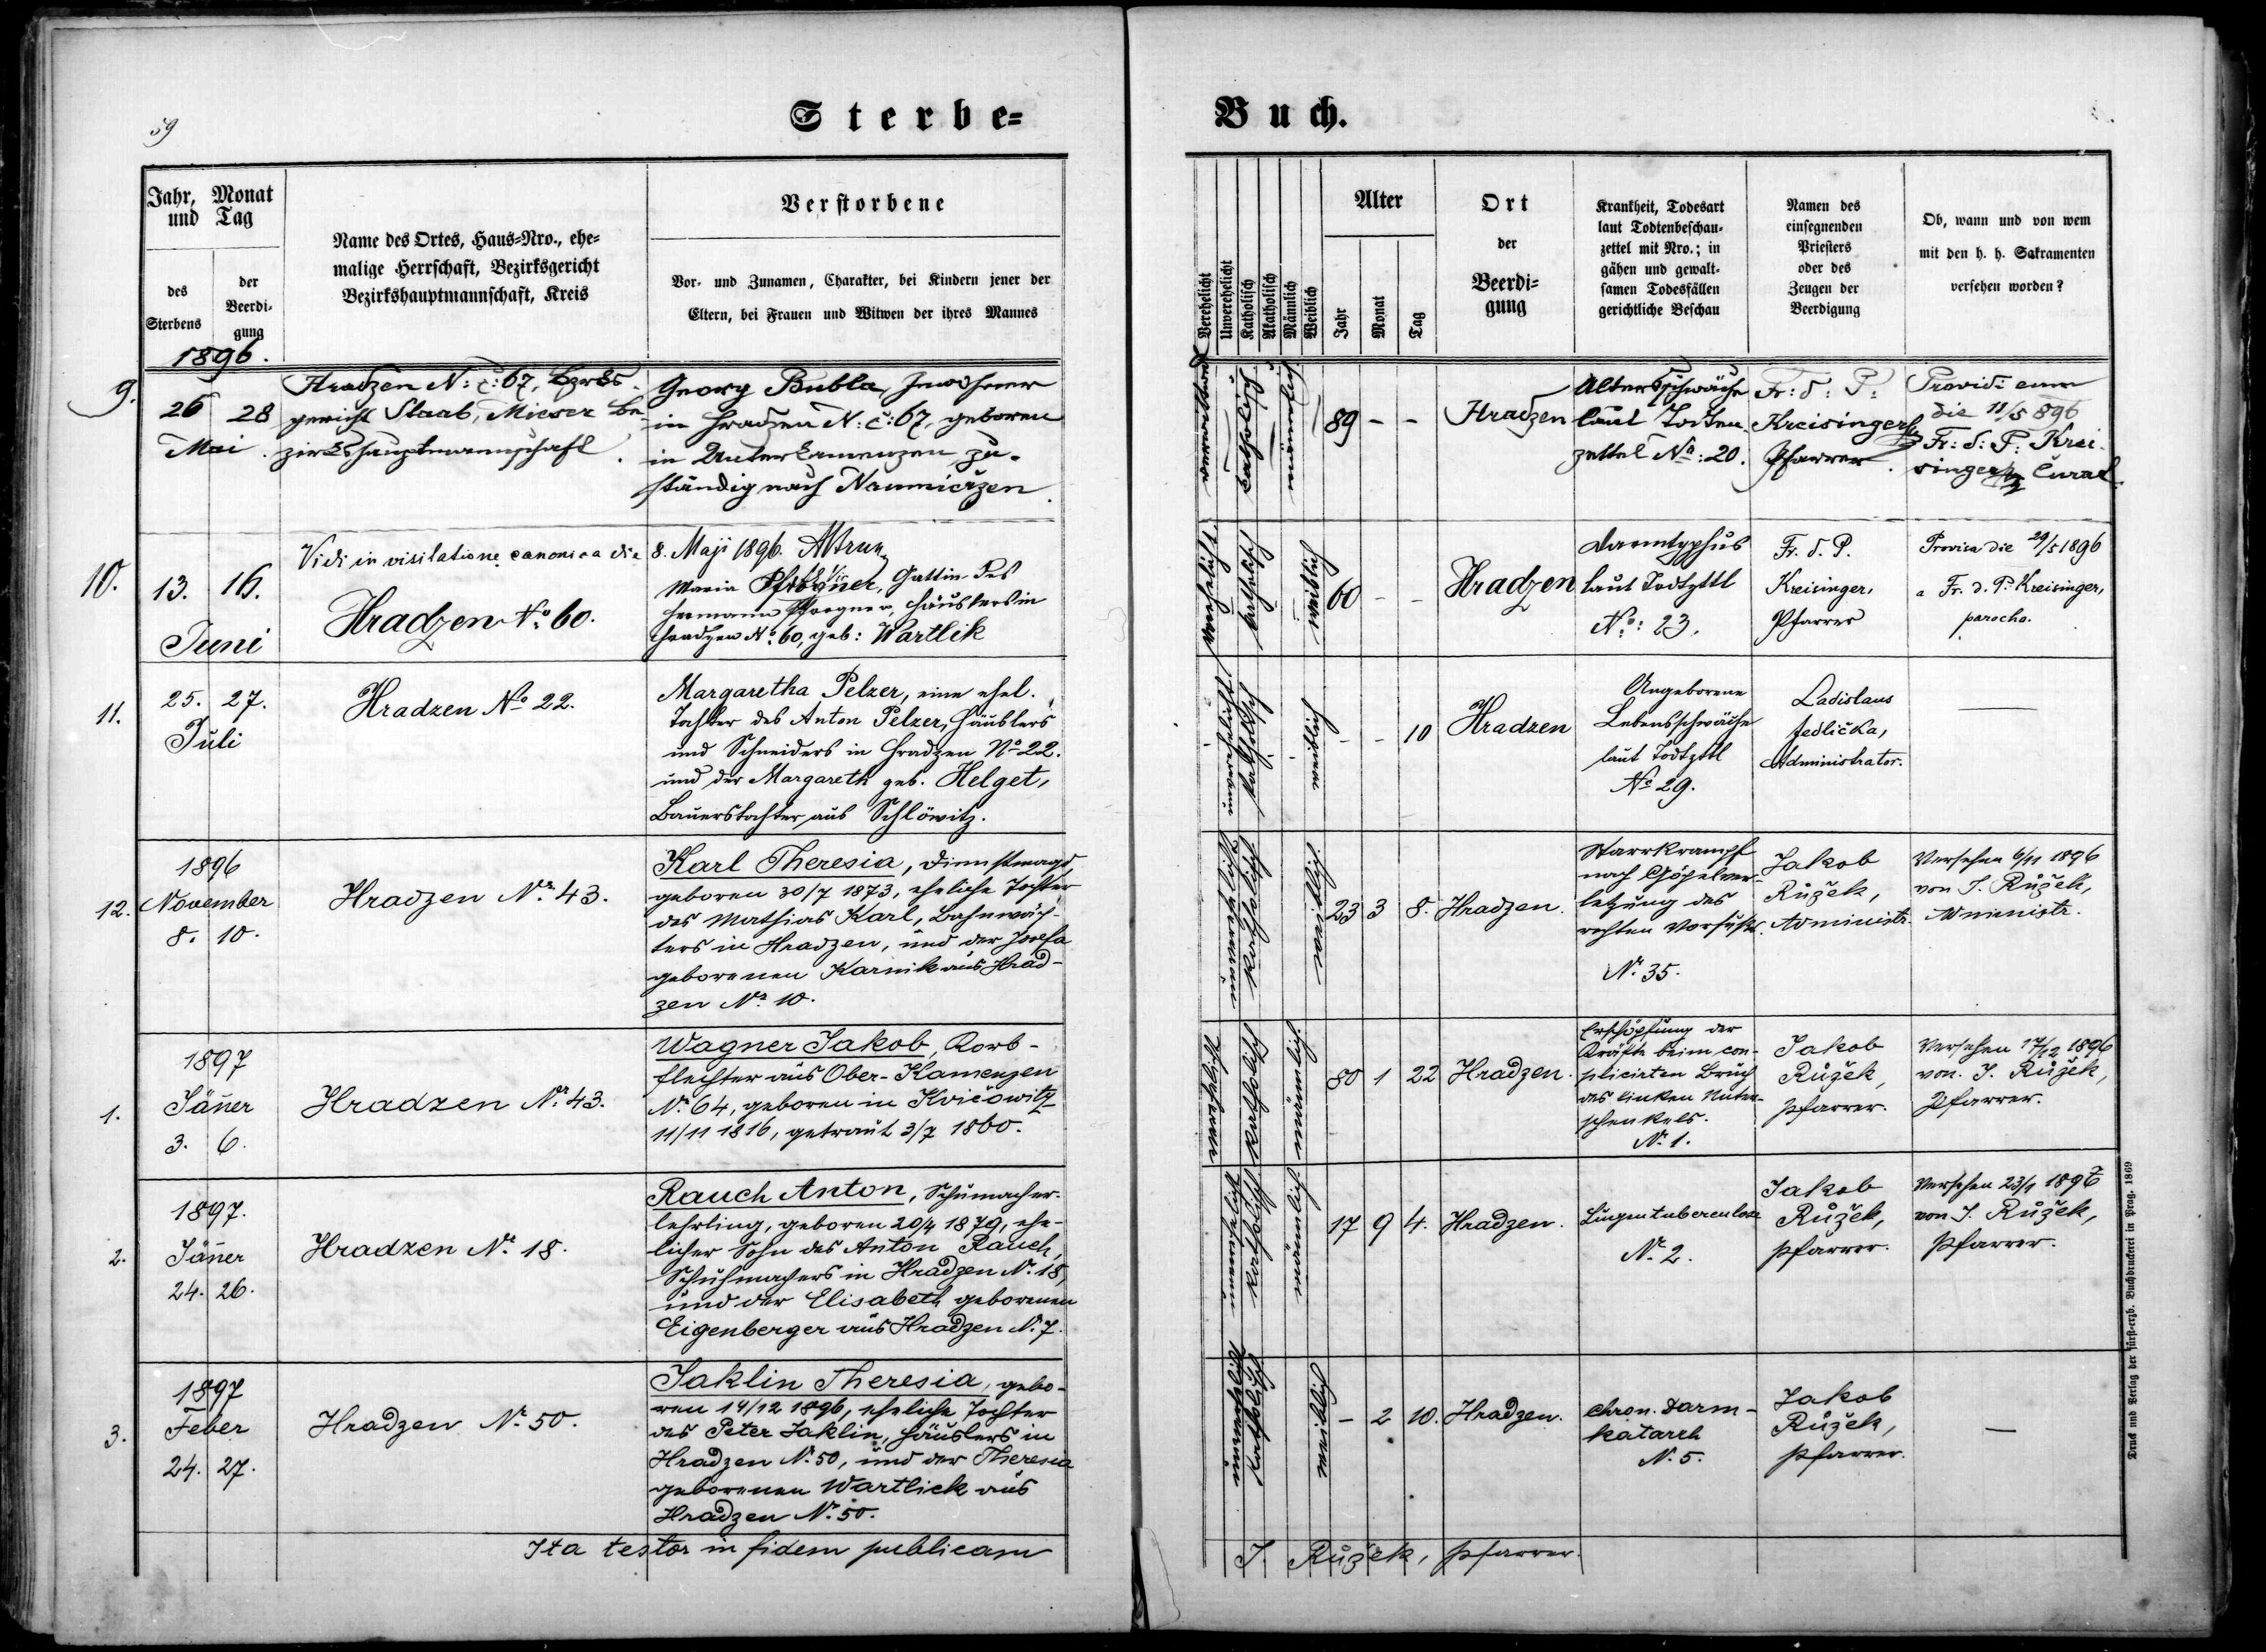 59
Sterbe=
Buch.
Jahr, Monat
und Tag
des
Sterbens
der
Beerdi-
gung
Name des Ortes, Haus=Nro., ehe=
malige Herrschaft, Bezirksgericht
Bezirkshauptmannschaft, Kreis
Verstorbene
Vor- und Zunamen, Charakter, bei Kindern jener der
Eltern, bei Frauen und Witwen der ihres Mannes
Verehelicht
Unverehelicht
Katholisch
Akatholisch
Männlich
Weiblich
Alter
Jahr
Monat
Tag
Ort
der
Beerdi=
gung
Krankheit, Todesart
laut Todtenbeschau-
zettel mit Nro.; in
gähen und gewalt-
samen Todesfällen
gerichtliche Beschau
Namen des
einsegnenden
Priesters
oder des
Zeugen der
Beerdigung
Ob, wann und von wem
mit den h. h. Sakramenten
versehen worden?
1896.
9.
26 28
Mai.
Hradzen N: č: 67, Bezirks-
gericht Staab, Mieser Be-
zirkshauptmannschaft.
Georg Bubla, Inwohner
in Hradzen N: č: 67, geboren
in Unterkamenzen zu-
ständig nach Nanniczen.
verwitwet
katholisch
männlich
89 - -
Hradzen
Altersschwäche
laut Todten-
zettel No: 20.
Fr: d: P:
Kreisinger
Pfarrer.
Providi eum
die 11/5 896
Fr: d: P: Krei-
singer Curat.
Vidi in visitatione canonica die 8. Maji 1896.
10.
13. 16.
Juni
Hradzen No. 60.
Maria Pfrogner, Gattin des
Hermann Pfrogner, Häuslers in
Hradzen No. 60, geb: Wartlik
verehelicht
katholisch
weiblich
60 - -
Hradzen
Darmtyphus
laut Todtzttl
No: 23.
Fr. d. P.
Kreisinger,
Pfarrer
Provisa die 29/5 1896
a Fr. d. P. Kreisinger,
parocho.
11.
25. 27.
Juli
Hradzen No 22.
Margaretha Pelzer, eine ehel.
Tochter des Anton Pelzer, Häuslers
und Schneiders in Hradzen No 22.
und der Margareth geb. Helget,
Bauerstochter aus Schlöwitz.
unverehelicht
katholisch
weiblich
- - 10
Hradzen
Angeborene
Lebensschwäche
laut Todtzttl
No 29.
Ladislaus
Jedlička,
Administrator.
—
12.
1896
November
8. 10.
Hradzen Nr. 43.
Karl Theresia, Dienstmagd,
geboren 30/7 1873, eheliche Tochter
des Mathias Karl, Bahnwäch-
ters in Hradzen, und der Josefa
geborenen Karnik aus Hrad-
zen Nr. 10.
unverehelicht
katholisch
weiblich
23 3 8.
Hradzen.
Starrkrampf
nach Göpelver-
letzung des
rechten Vorfußes.
Nr. 35.
Jakob
Růžek,
Administr.
Versehen 6/11 1896
von J. Růžek,
Administr.
1.
1897
Jäner
3. 6.
Hradzen Nr. 43.
Wagner Jakob, Korb-
flechter aus Ober-Kamenzen
Nr. 64, geboren in Kvičowitz
11/11 1816, getraut 3/7 1860.
verehelicht
katholisch
männlich.
80 1 22
Hradzen.
Erschöpfung der
Kräfte beim com-
plicirten Bruch
des linken Unter-
schenkels.
Nr. 1.
Jakob
Růžek,
Pfarrer.
Versehen 17/12 1896
von J. Růžek,
Pfarrer.
2.
1897.
Jäner
24. 26.
Hradzen Nr. 18.
Rauch Anton, Schumacher-
lehrling, geboren 20/4 1879, ehe-
licher Sohn des Anton Rauch,
Schuhmachers in Hradzen Nr. 18,
und der Elisabeth geborenen
Eigenberger aus Hradzen Nr. 7.
unverehelicht
katholisch
männlich
17 9 4.
Hradzen.
Lungentuberculose
Nr. 2.
Jakob
Růžek,
Pfarrer.
Versehen 23/1 1897
von J. Růžek,
Pfarrer.
3.
1897
Feber
24. 27.
Hradzen Nr. 50.
Jaklin Theresia, gebo-
ren 14/12 1896, eheliche Tochter
des Peter Jaklin, Häuslers in
Hradzen Nr. 50, und der Theresia
geborenen Wartlick aus
Hradzen Nr. 50.
unverehelicht
katholisch
weiblich
- 2 10.
Hradzen.
chron. Darm-
katarrh
Nr. 5.
Jakob
Růžek,
Pfarrer.
—
Ita testor in fidem publicam
J. Růžek, Pfarrer.
Druck und Verlag der fürst-erzb. Buchdruckerei in Prag. 1869